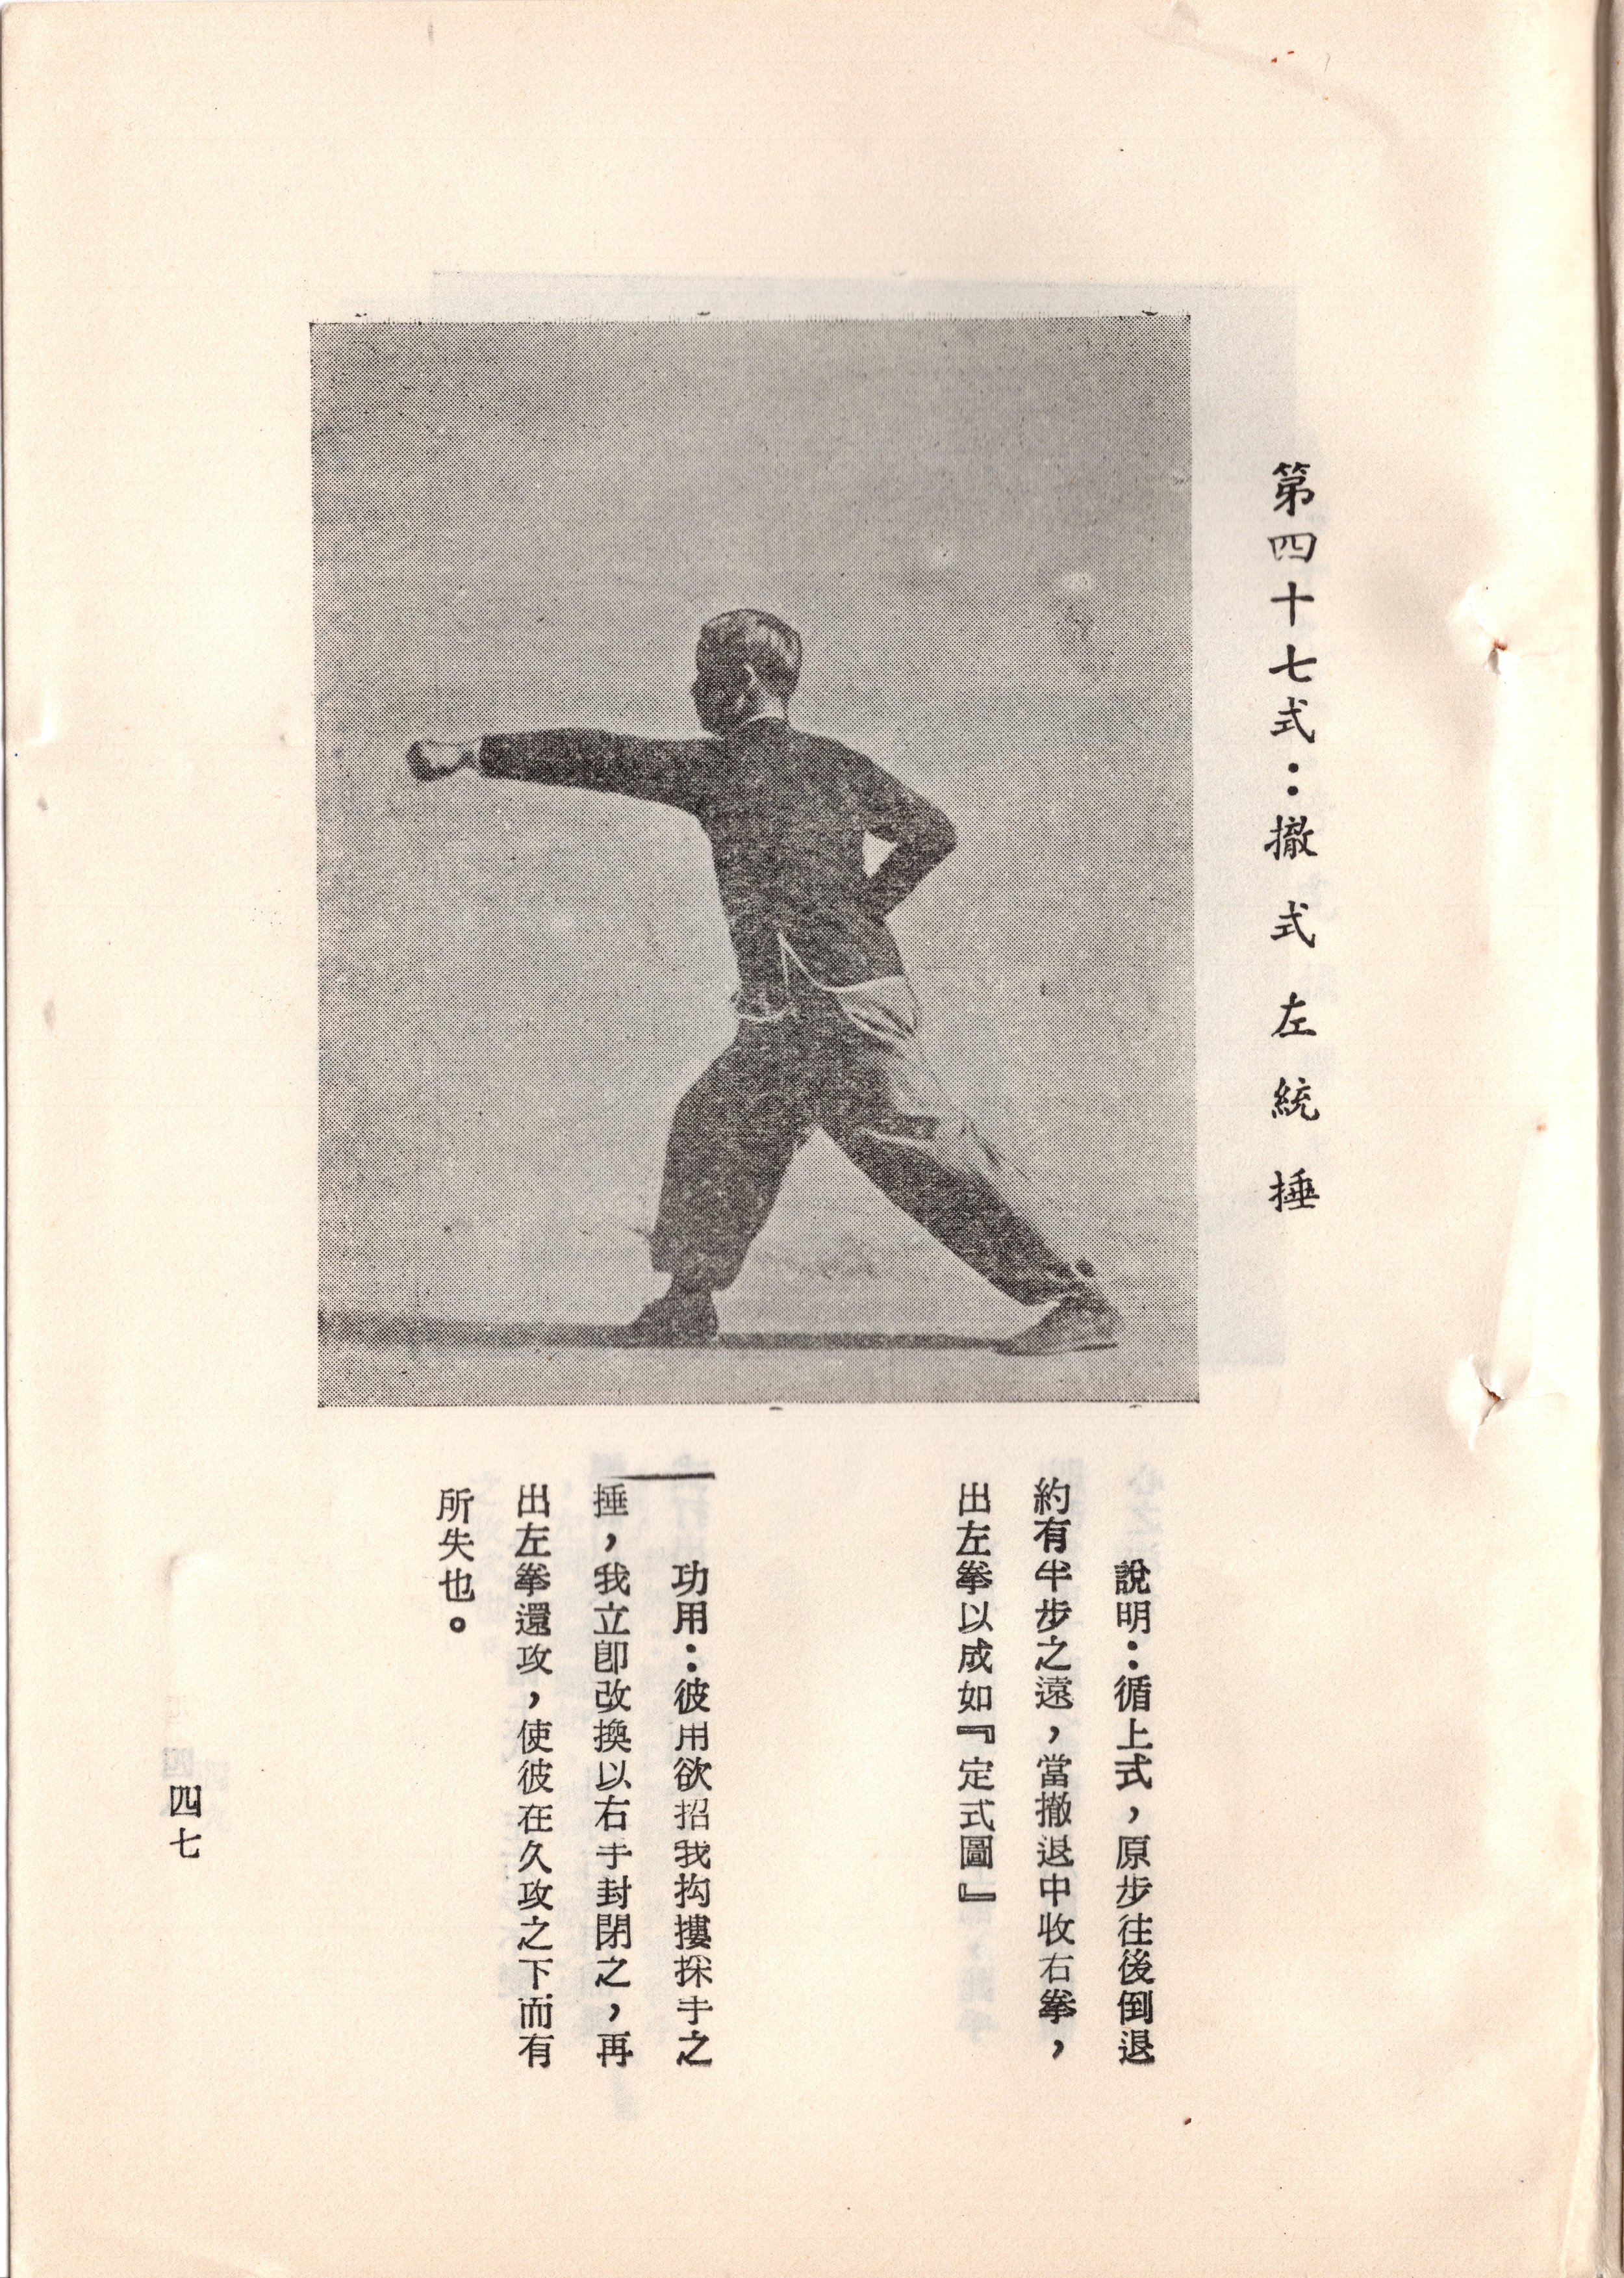 第四十七式：撤式左統捶
說明：循上式，原步往後倒退
約有半步之遠，當撤退中收右拳，
出左拳以成如『定式圖』
功用：彼用欲招我抅摟採手之
捶，我立卽改換以右手封閉之，再
出左拳還攻，使彼在久攻之下而有
所失也。
四七